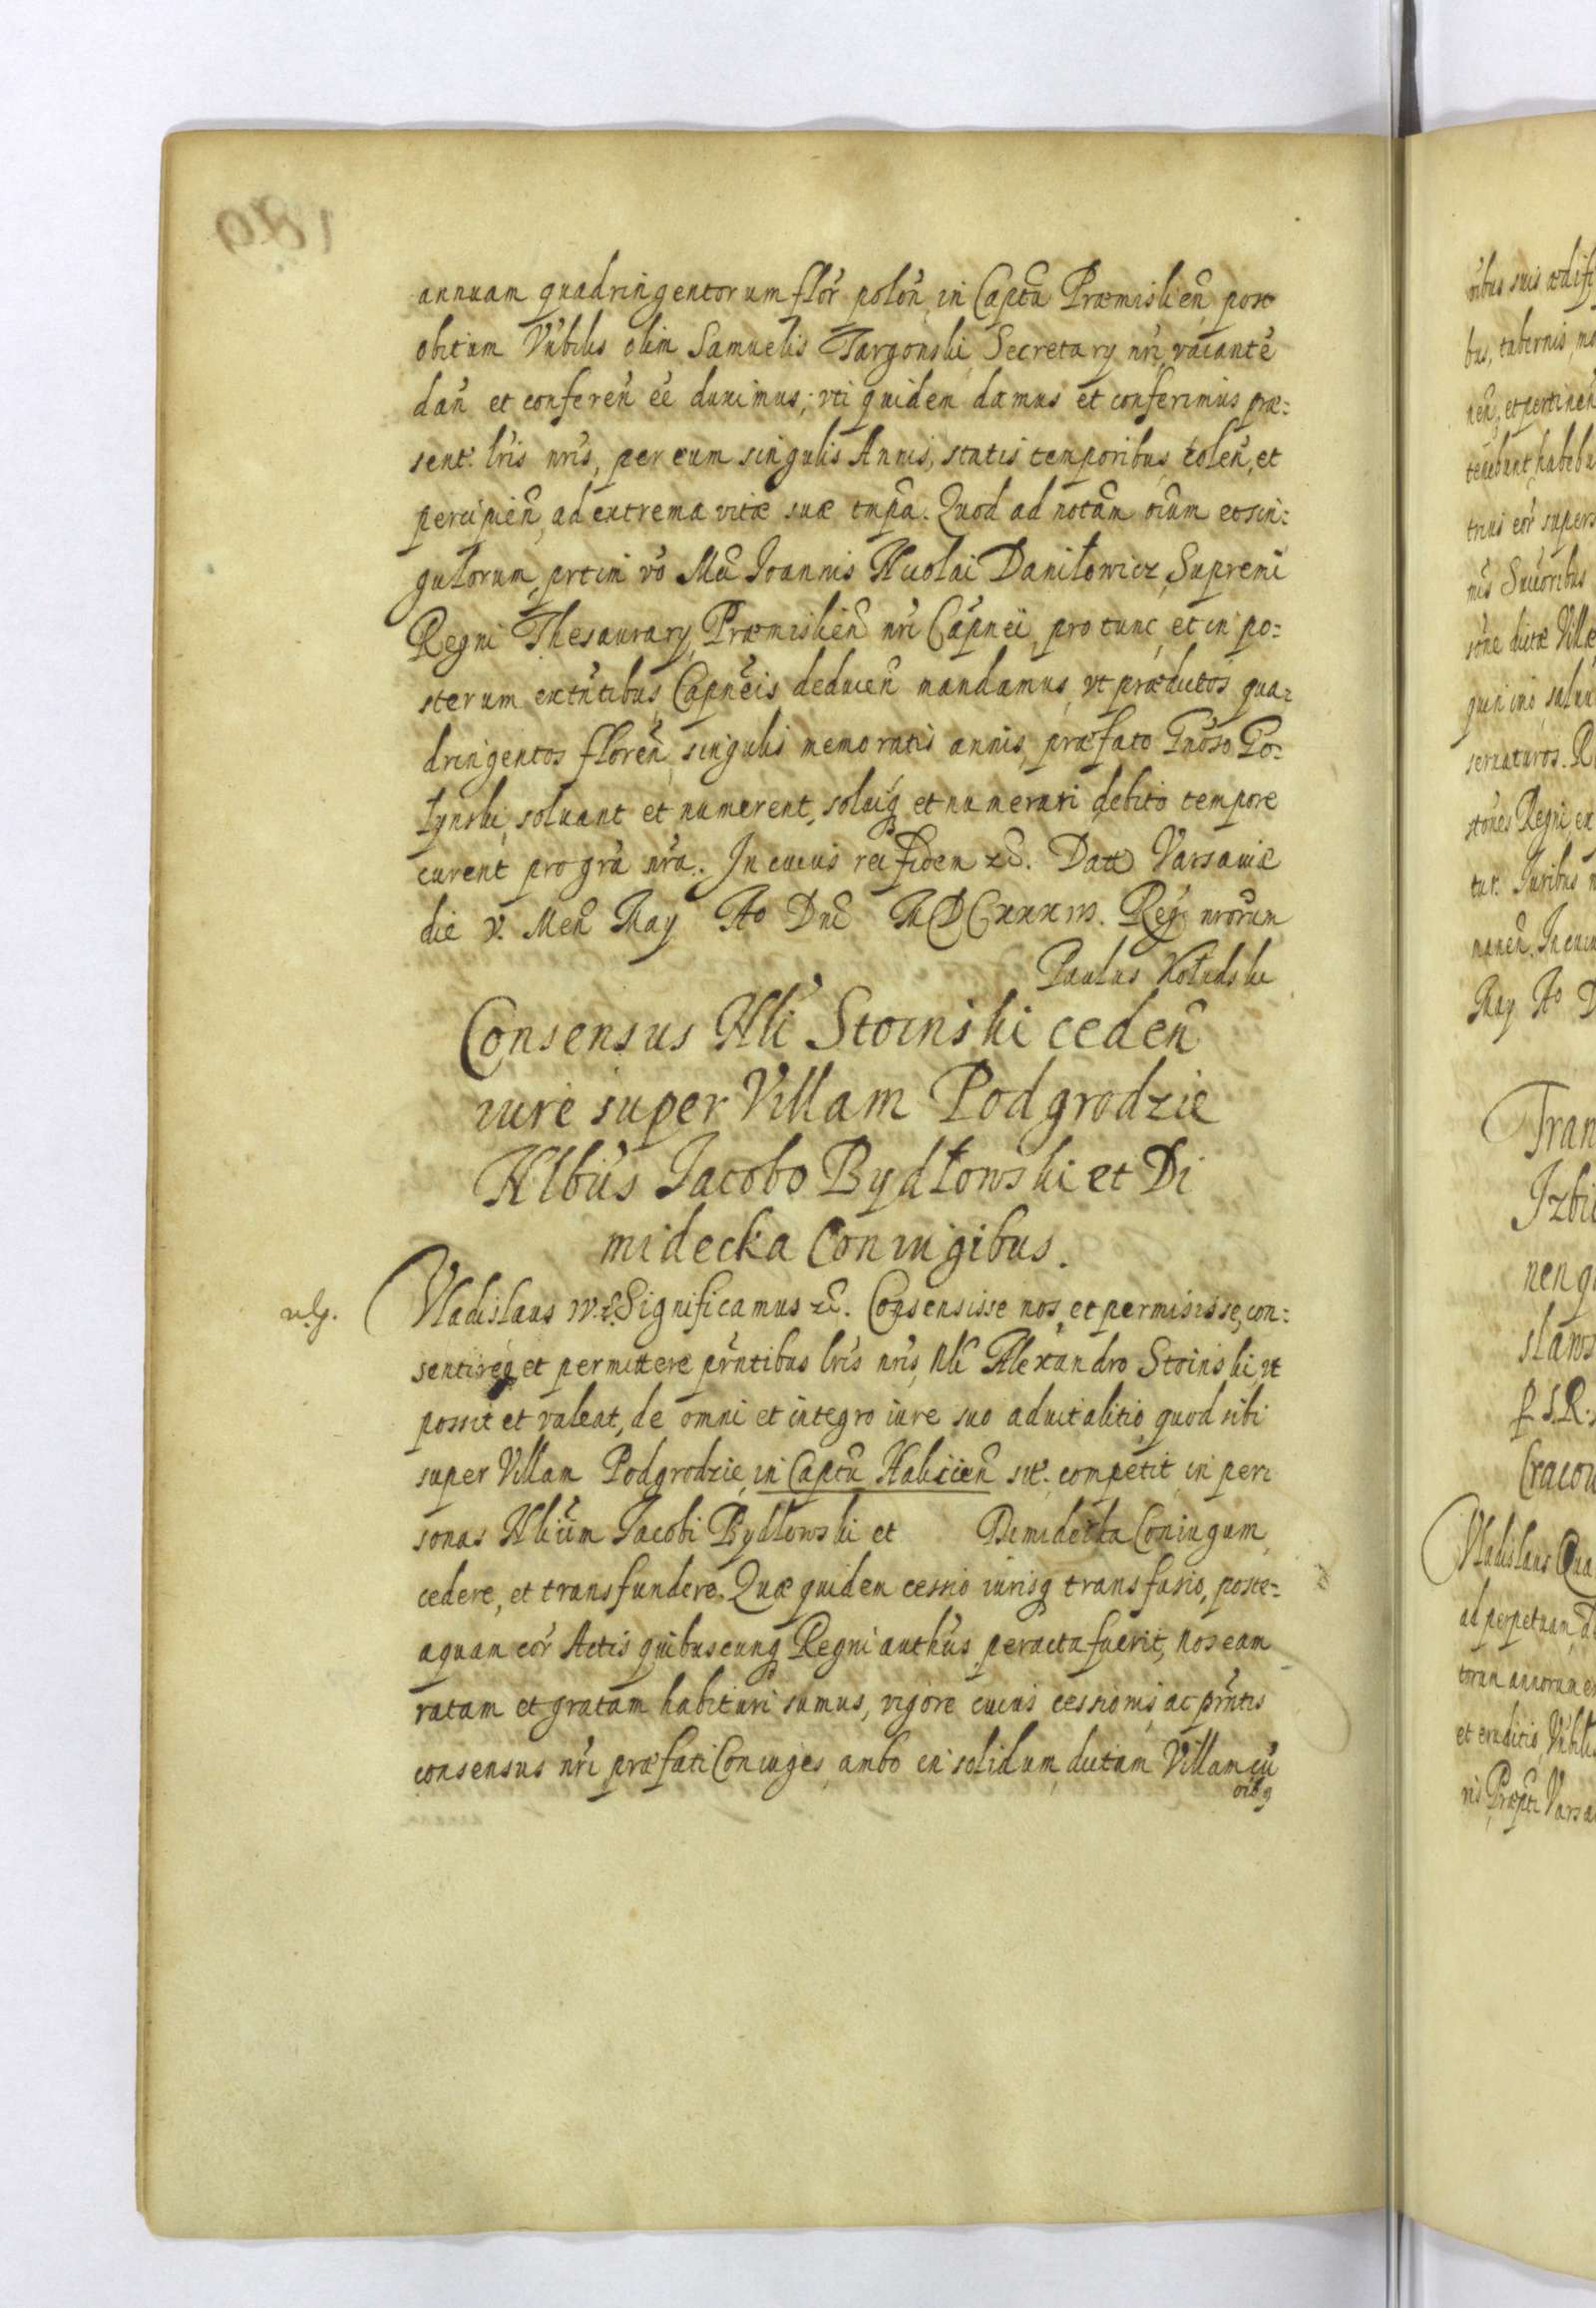 annuam quadringentorum flor̃ polon̄, in Captũ Præmislien̄, post
obitum Vr̃bilis olim Samuelis Targonski, Secretarÿ nr̃i, vacantẽ
dan̄ et conferen̄ eẽ duximus; vti quidem damus et conferimus præ:
sent: lr̃is nr̃is, per eum singulis Annis, statis temporibus, tolen̄, et
percipien̄, ad extrema vitæ suæ tmpã. Quod ad notam̃ oium̃ et sin:
gulorum, prtim̃ vo Mci Ioannis Nicolai Daniłowicz, Supremi
Regni Thesaurarÿ, Præmislien̄ nr̃i Capnei, pro tunc, et in po:
sterum extñtibus, Capneis deducen̄ mandamus, vt prædictos qua:
dringentos floren̄, singulis memoratis annis, præfato Gnoso Go:
łynski, soluant et numerent, soluiq et numerari debito tempore
curent pro gra nr̃a. In cuius rei fidem zc̃. Datt Varsauiæ
die V. Men̄ May Ao Dnĩ MDCxxxvi. Reg: nrorum
Paulus Kołudski
Consensus Nli Stoinski ceden̄
iure super Villam Podgrodzie
Nlbus Iacobo Bydłowski et Di
midecka Coniugibus.
n.g.
Vladislaus IV. zc̃ Significamus zc̃. Consensisse nos, et permisisse, con:
sentireq et permittere prñtibus lr̃is nr̃is, Nli Alexandro Stoinski, vt
possit et valeat, de omni et integro iure suo aduitalitio, quod sibi
super Villam Podgrodzie, in Captũ Halicien̄ sit: competit, in per:
sonas Nlium Iacobi Bydłowski et Dimidecka Coniugum,
cedere, et transfundere. Quæ quidem cessio iurisq transfusio, poste:
aquam cor̃ Actis quibuscunq Regni auth̃cis peracta fuerit, nos eam
ratam et gratam habituri sumus, vigore cuius cessionis, ac prñtis
consensus nr̃i præfati Coniuges, ambo in solidum, dictam Villam cũ
oib9